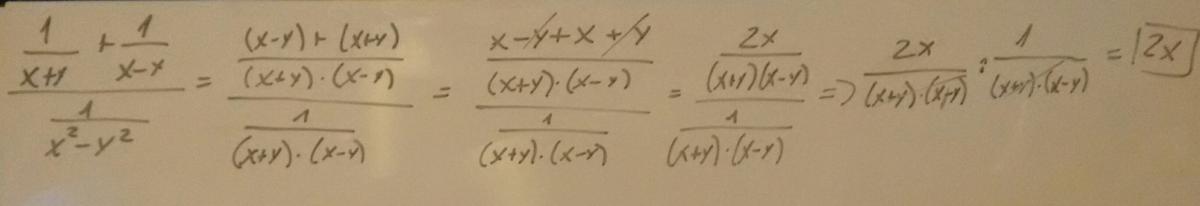 \frac{\frac{1}{x+y} + \frac{1}{x-x}}{\frac{1}{x^2-y^2}} = \frac{\frac{(x-y)+(x+y)}{(x+y)\cdot(x-y)}}{\frac{1}{(x+y)\cdot(x-y)}} = \frac{\frac{x-y+x+y}{(x+y)\cdot(x-y)}}{\frac{1}{(x+y)\cdot(x-y)}} = \frac{\frac{2x}{(x+y)(x-y)}}{\frac{1}{(x+y)\cdot(x-y)}} => \frac{2x}{(x+y)\cdot(x-y)} : \frac{1}{(x+y)\cdot(x-y)} = 2x